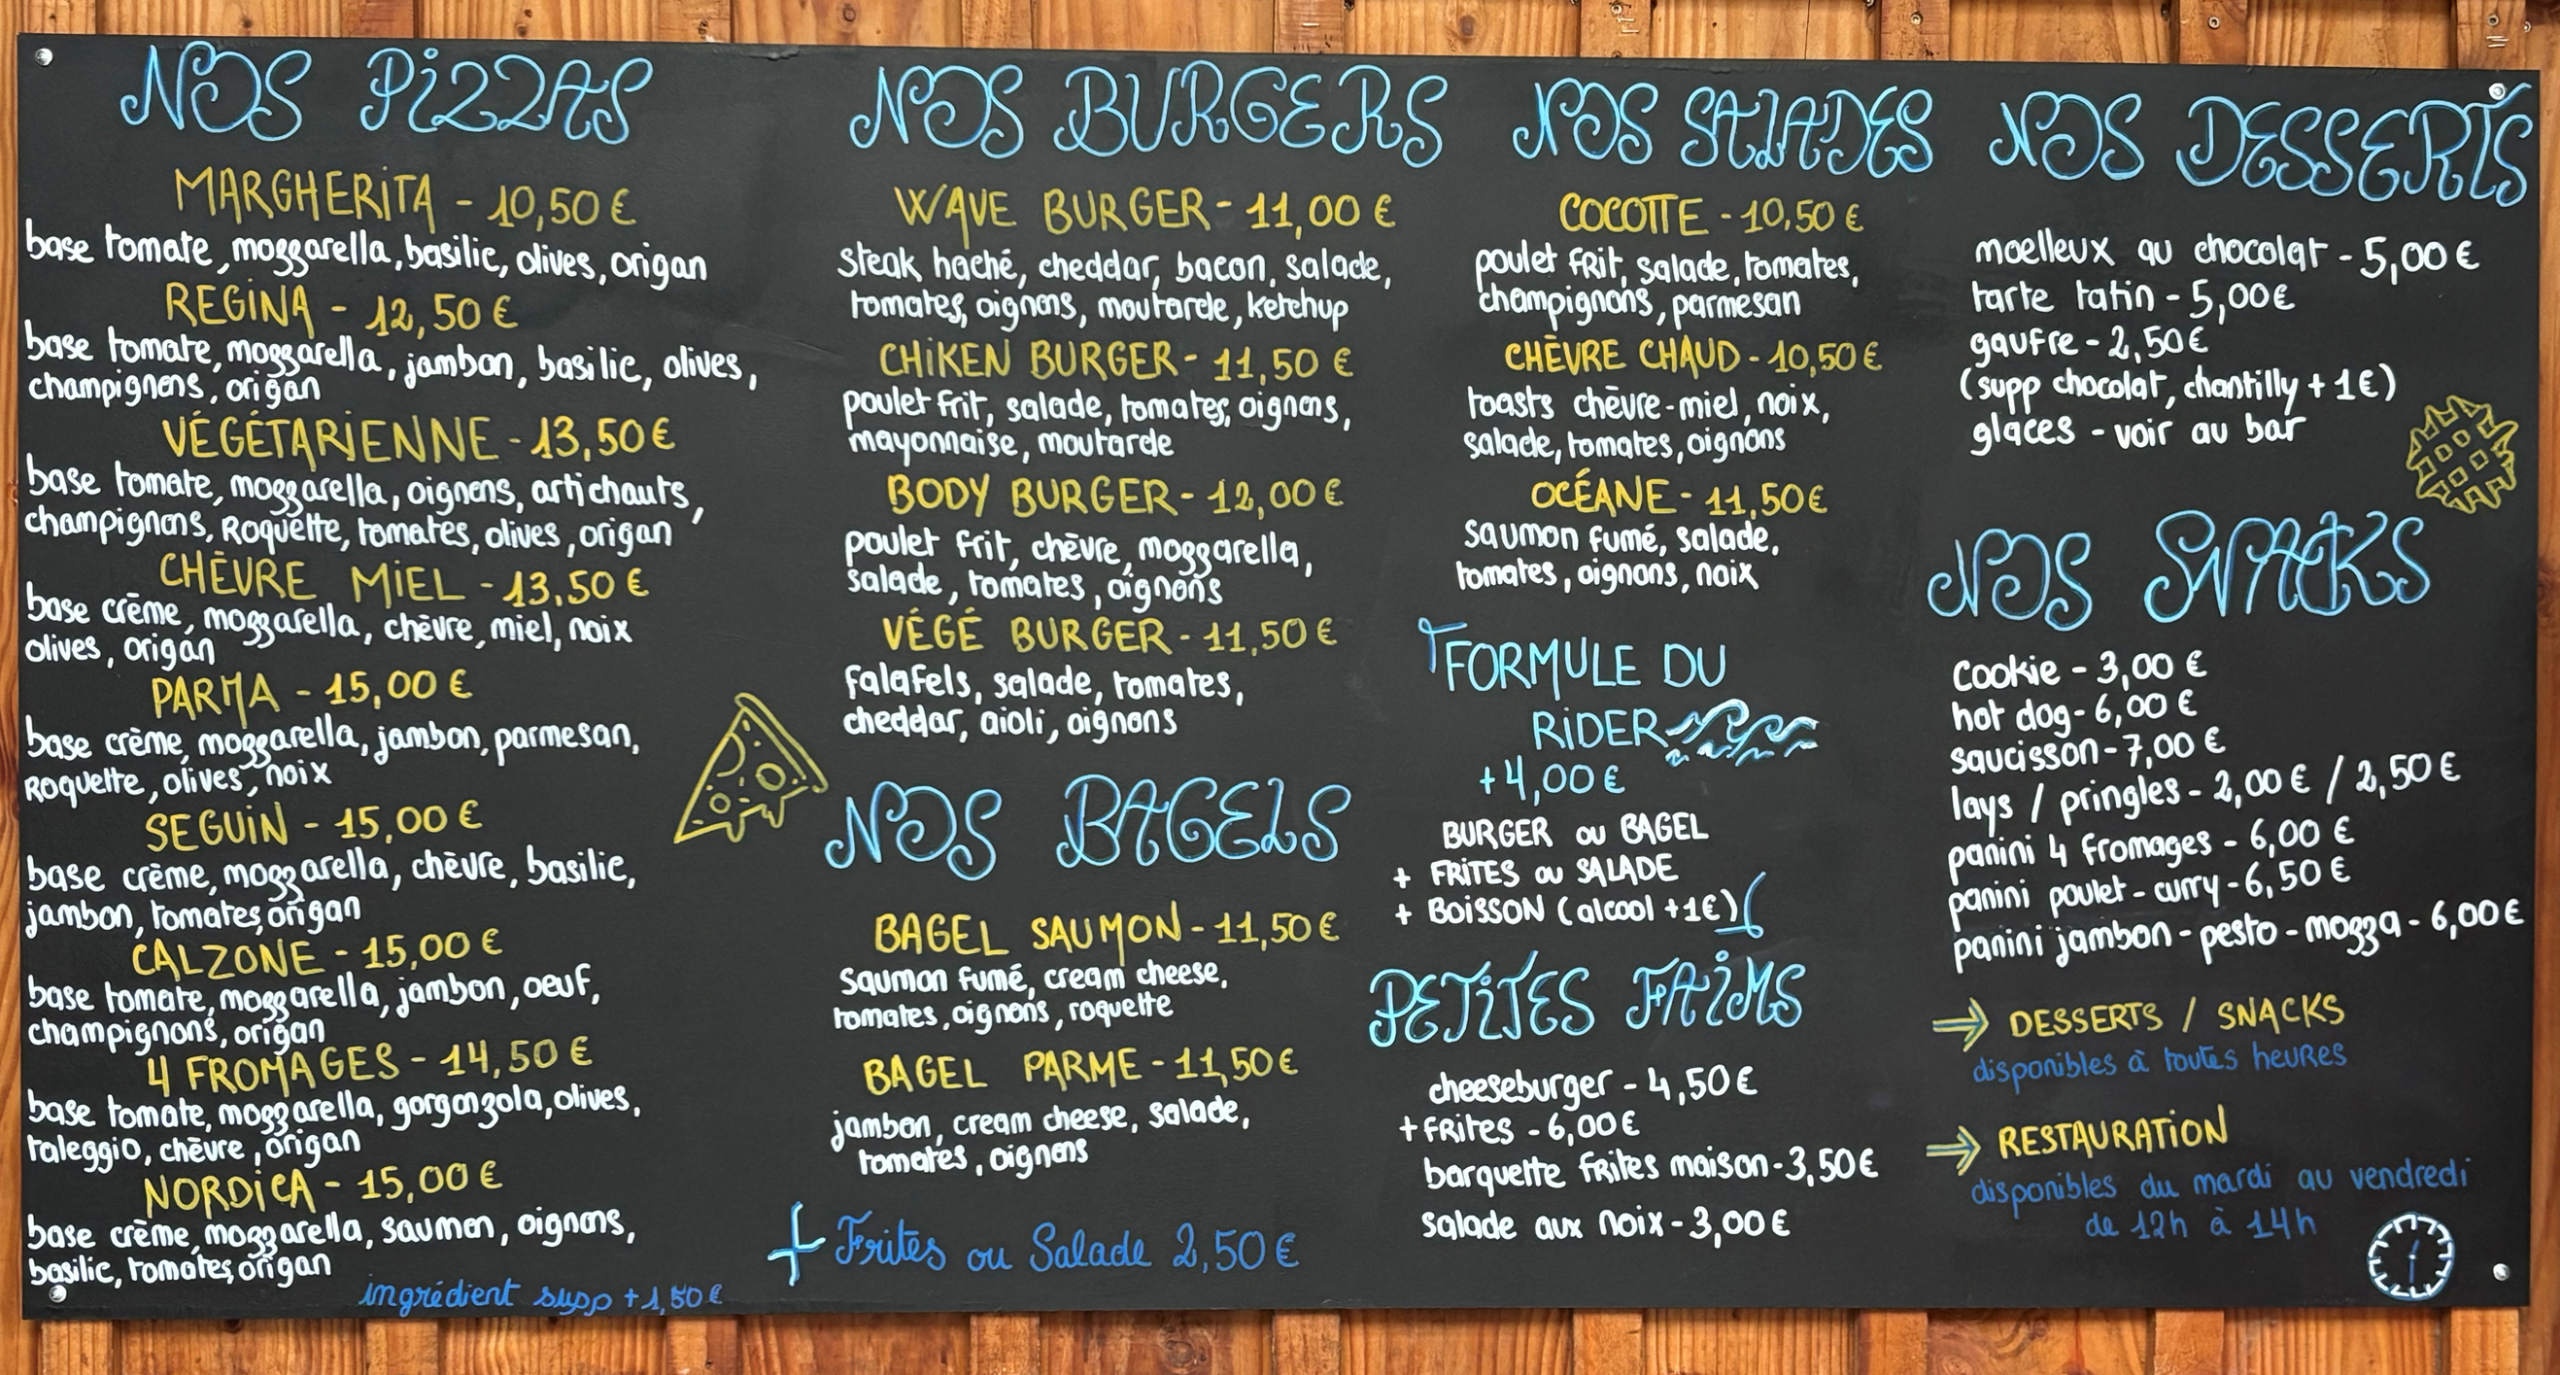 NOS PiZZAS
MARGHERiTA - 10,50 €
base tomate, mozzarella, basilic, olives, origan
REGiNA - 12,50 €
base tomate, mozzarella, jambon, basilic, olives,
champignons, origan
VÉGÉTARiENNE - 13,50 €
base tomate, mozzarella, oignons, artichauts,
champignons, Roquette, tomates, olives, origan
CHÈVRE MiEL - 13,50 €
base crème, mozzarella, chèvre, miel, noix
olives, origan
PARMA - 15,00 €
base crème, mozzarella, jambon, parmesan,
Roquette, olives, noix
SEGUiN - 15,00 €
base crème, mozzarella, chèvre, basilic,
jambon, tomates, origan
CALZONE - 15,00 €
base tomate, mozzarella, jambon, oeuf,
champignons, origan
4 FROMAGES - 14,50 €
base tomate, mozzarella, gorgonzola, olives,
taleggio, chèvre, origan
NORDiCA - 15,00 €
base crème, mozzarella, saumon, oignons,
basilic, tomates, origan
ingrédient supp + 1,50 €
NOS BURGERS
WAVE BURGER - 11,00 €
steak haché, cheddar, bacon, salade,
tomates, oignons, moutarde, ketchup
CHiKEN BURGER - 11,50 €
poulet frit, salade, tomates, oignons,
mayonnaise, moutarde
BODY BURGER - 12,00 €
poulet frit, chèvre, mozzarella,
salade, tomates, oignons
VÉGÉ BURGER - 11,50 €
falafels, salade, tomates,
cheddar, aioli, oignons
NOS BAGELS
BAGEL SAUMON - 11,50 €
saumon fumé, cream cheese,
tomates, oignons, roquette
BAGEL PARME - 11,50 €
jambon, cream cheese, salade,
tomates, oignons
+ Frites ou Salade 2,50 €
NOS SALADES
COCOTTE - 10,50 €
poulet frit, salade, tomates,
champignons, parmesan
CHÈVRE CHAUD - 10,50 €
toasts chèvre-miel, noix,
salade, tomates, oignons
OCÉANE - 11,50 €
saumon fumé, salade,
tomates, oignons, noix
FORMULE DU
RiDER
+4,00 €
BURGER ou BAGEL
+ FRiTES ou SALADE
+ BOiSSON (alcool +1€)
PETiTES FAiMS
cheeseburger - 4,50 €
+ frites - 6,00 €
barquette frites maison - 3,50 €
salade aux noix - 3,00 €
NOS DESSERTS
moelleux au chocolat - 5,00 €
tarte tatin - 5,00 €
gaufre - 2,50 €
(supp chocolat, chantilly + 1€)
glaces - voir au bar
NOS SNACKS
cookie - 3,00 €
hot dog - 6,00 €
saucisson - 7,00 €
lays / pringles - 2,00 € / 2,50 €
panini 4 fromages - 6,00 €
panini poulet - curry - 6,50 €
panini jambon - pesto - mozza - 6,00 €
⇒ DESSERTS / SNACKS
disponibles à toutes heures
⇒ RESTAURATiON
disponibles du mardi au vendredi
de 12h à 14h